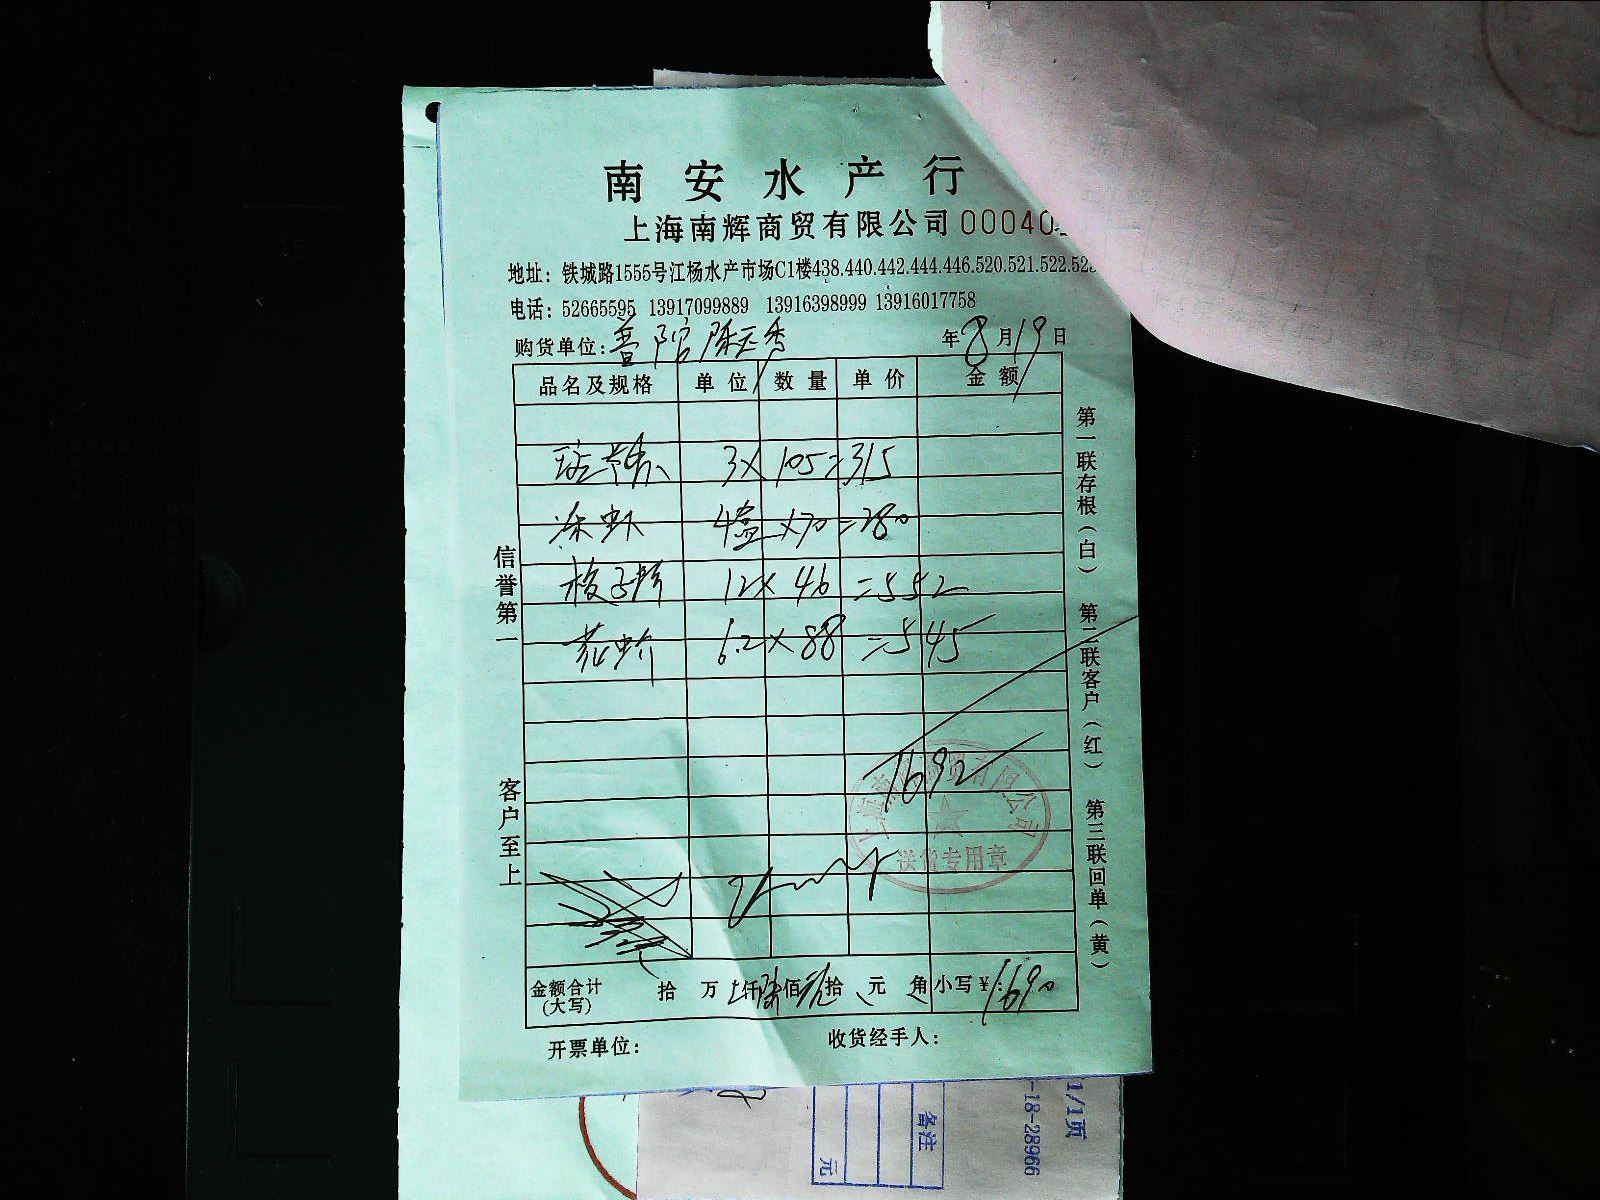 南安水产行
上海南辉商贸有限公司 00040
地址：铁城路1555号江杨水产市场C1楼438.440.442.444.446.520.521.522.523
电话：52665595 13917099889 13916398999 13916017758
购货单位：普陀 陈玉秀 年8月19日
品名及规格 单位 数量 单价 金额
3×105=315
冻虾 4盒×70=280
梭子蟹 12×46=552
花虾 6.2×88=545
1692
上海南辉商贸有限公司
送货专用章
金额合计(大写) 拾 万 仟 陆佰 玖拾 元 角 小写￥：1690
开票单位： 收货经手人：
信誉第一 客户至上
第一联存根（白） 第二联客户（红） 第三联回单（黄）
1/1页
-18-28966
备注
元